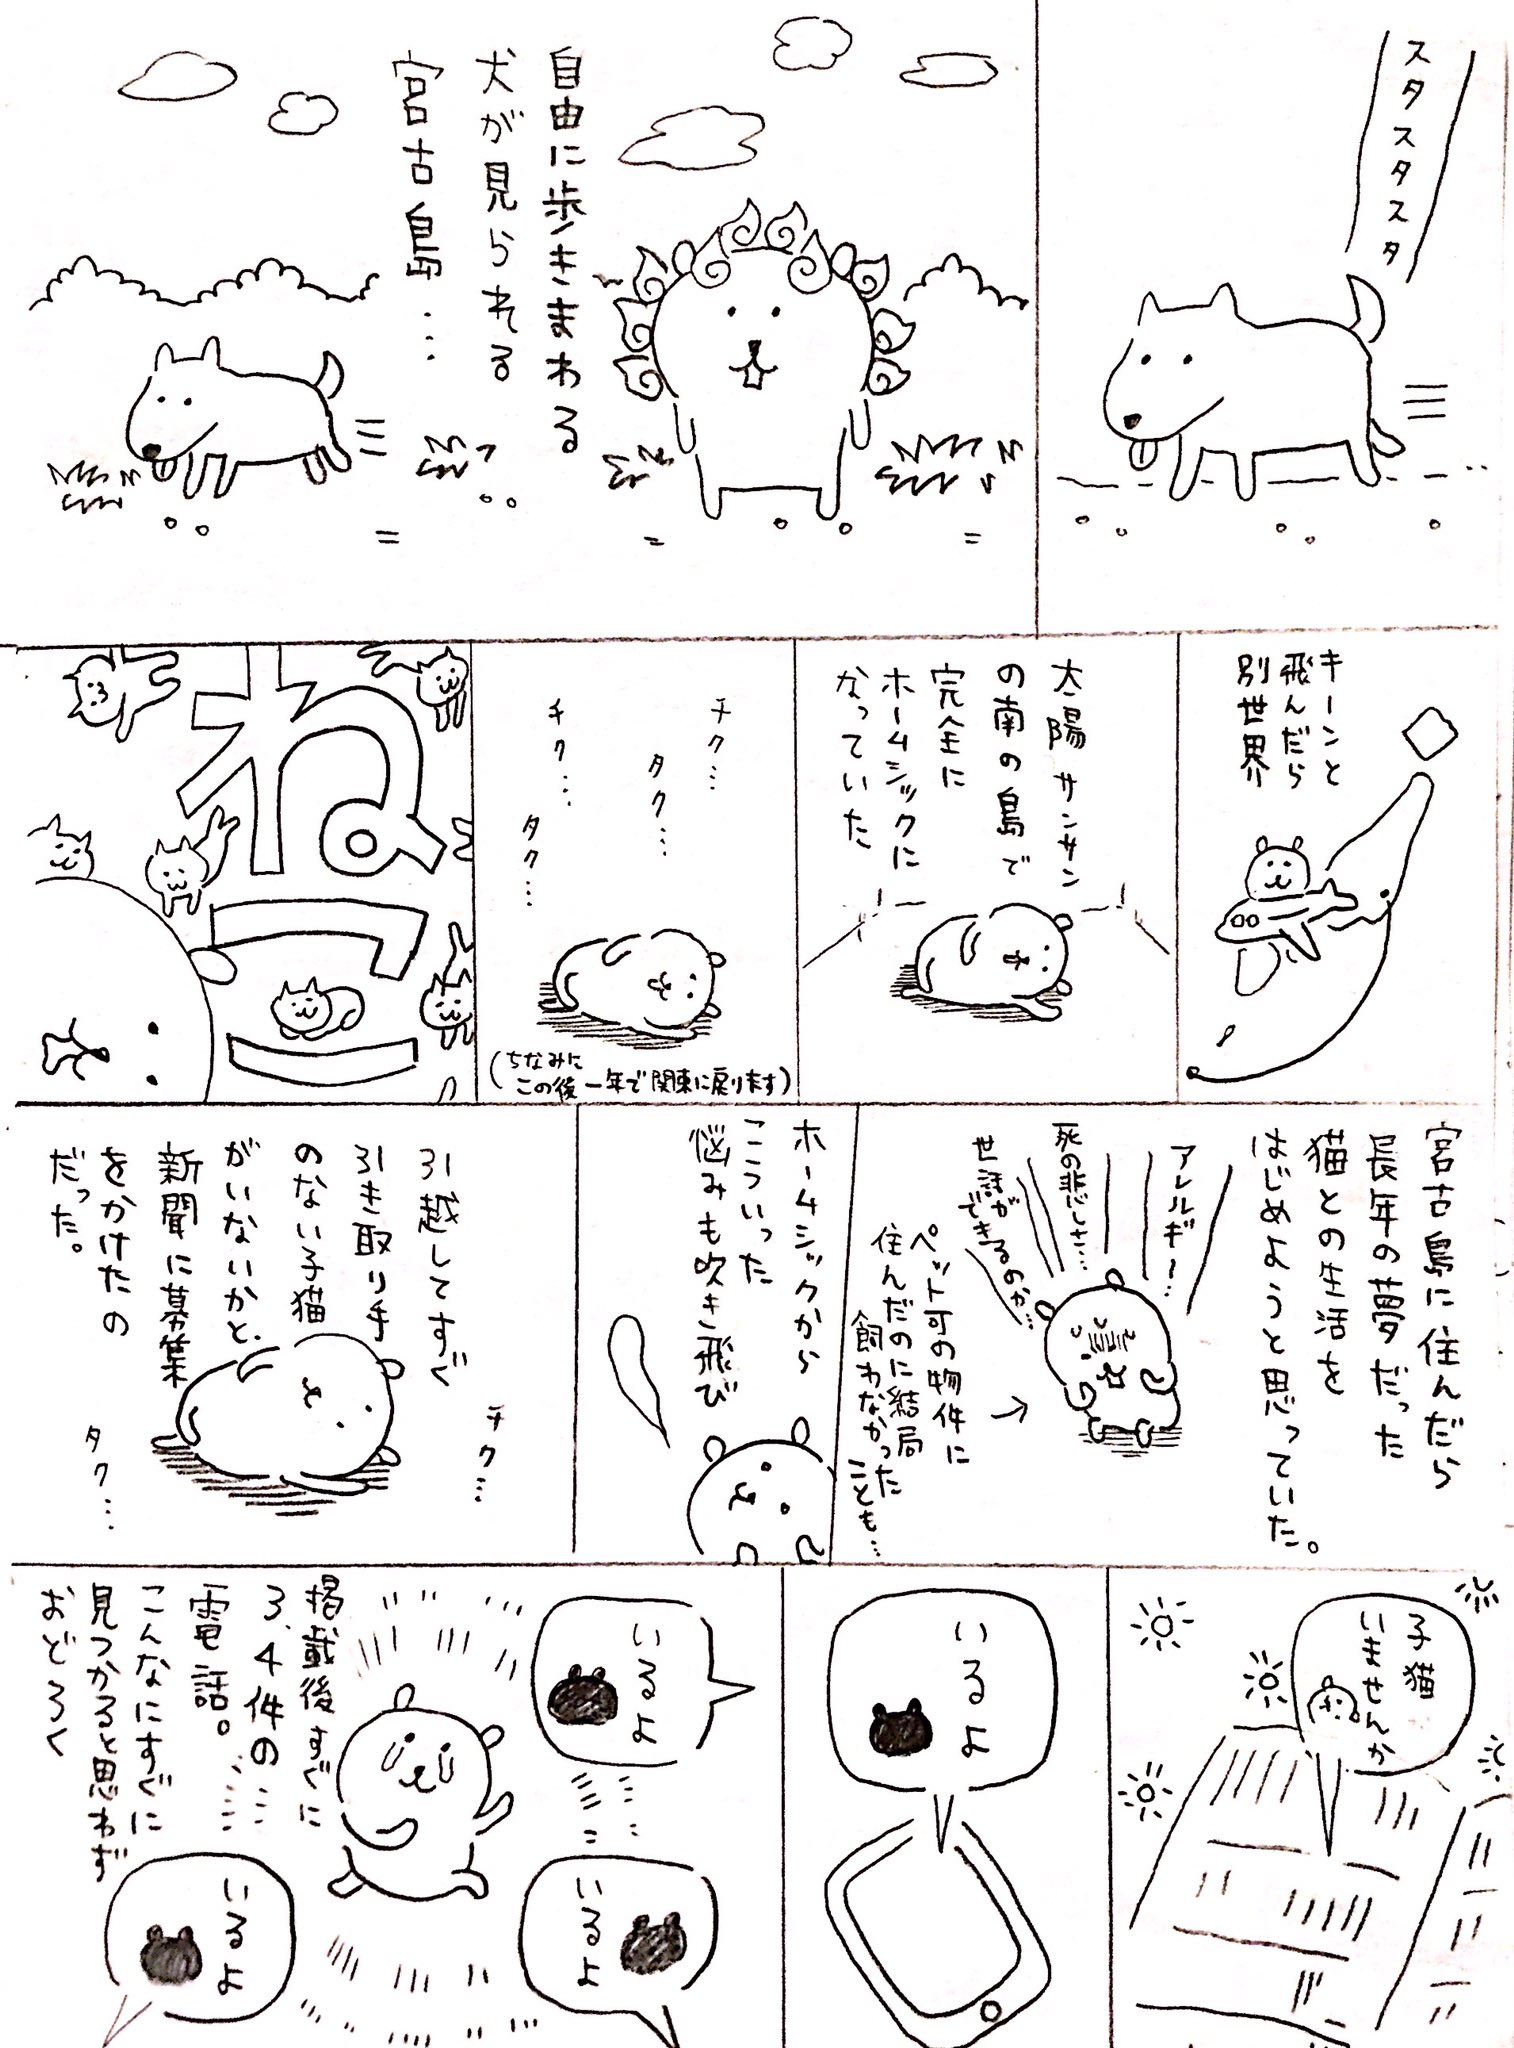 スタスタスタスタ
自由に歩きまわる
犬が見られる
宮古島…
キーンと
飛んだら
別世界
太陽サンサン
の南の島で
完全に
ホームシックに
なっていた
チク…
タク…
チク…
タク…
(ちなみに
この後一年で関東に戻ります)
ねこ
宮古島に住んだら
長年の夢だった
猫との生活を
はじめようと思っていた。
アレルギー…
死の悲しさ…
世話が
できるのか…
ペット可の物件に
住んだのに結局
飼わなかった
ことも…
ホームシックから
こういった
悩みも吹き飛び
引越してすぐ
引き取り手
のない子猫
がいないかと、
新聞に募集
をかけたの
だった。
チク…
タク…
子猫
いませんか
いるよ
いるよ
いるよ
いるよ
掲載後すぐに
3、4件の
電話。
こんなにすぐに
見つかると思わず
おどろく